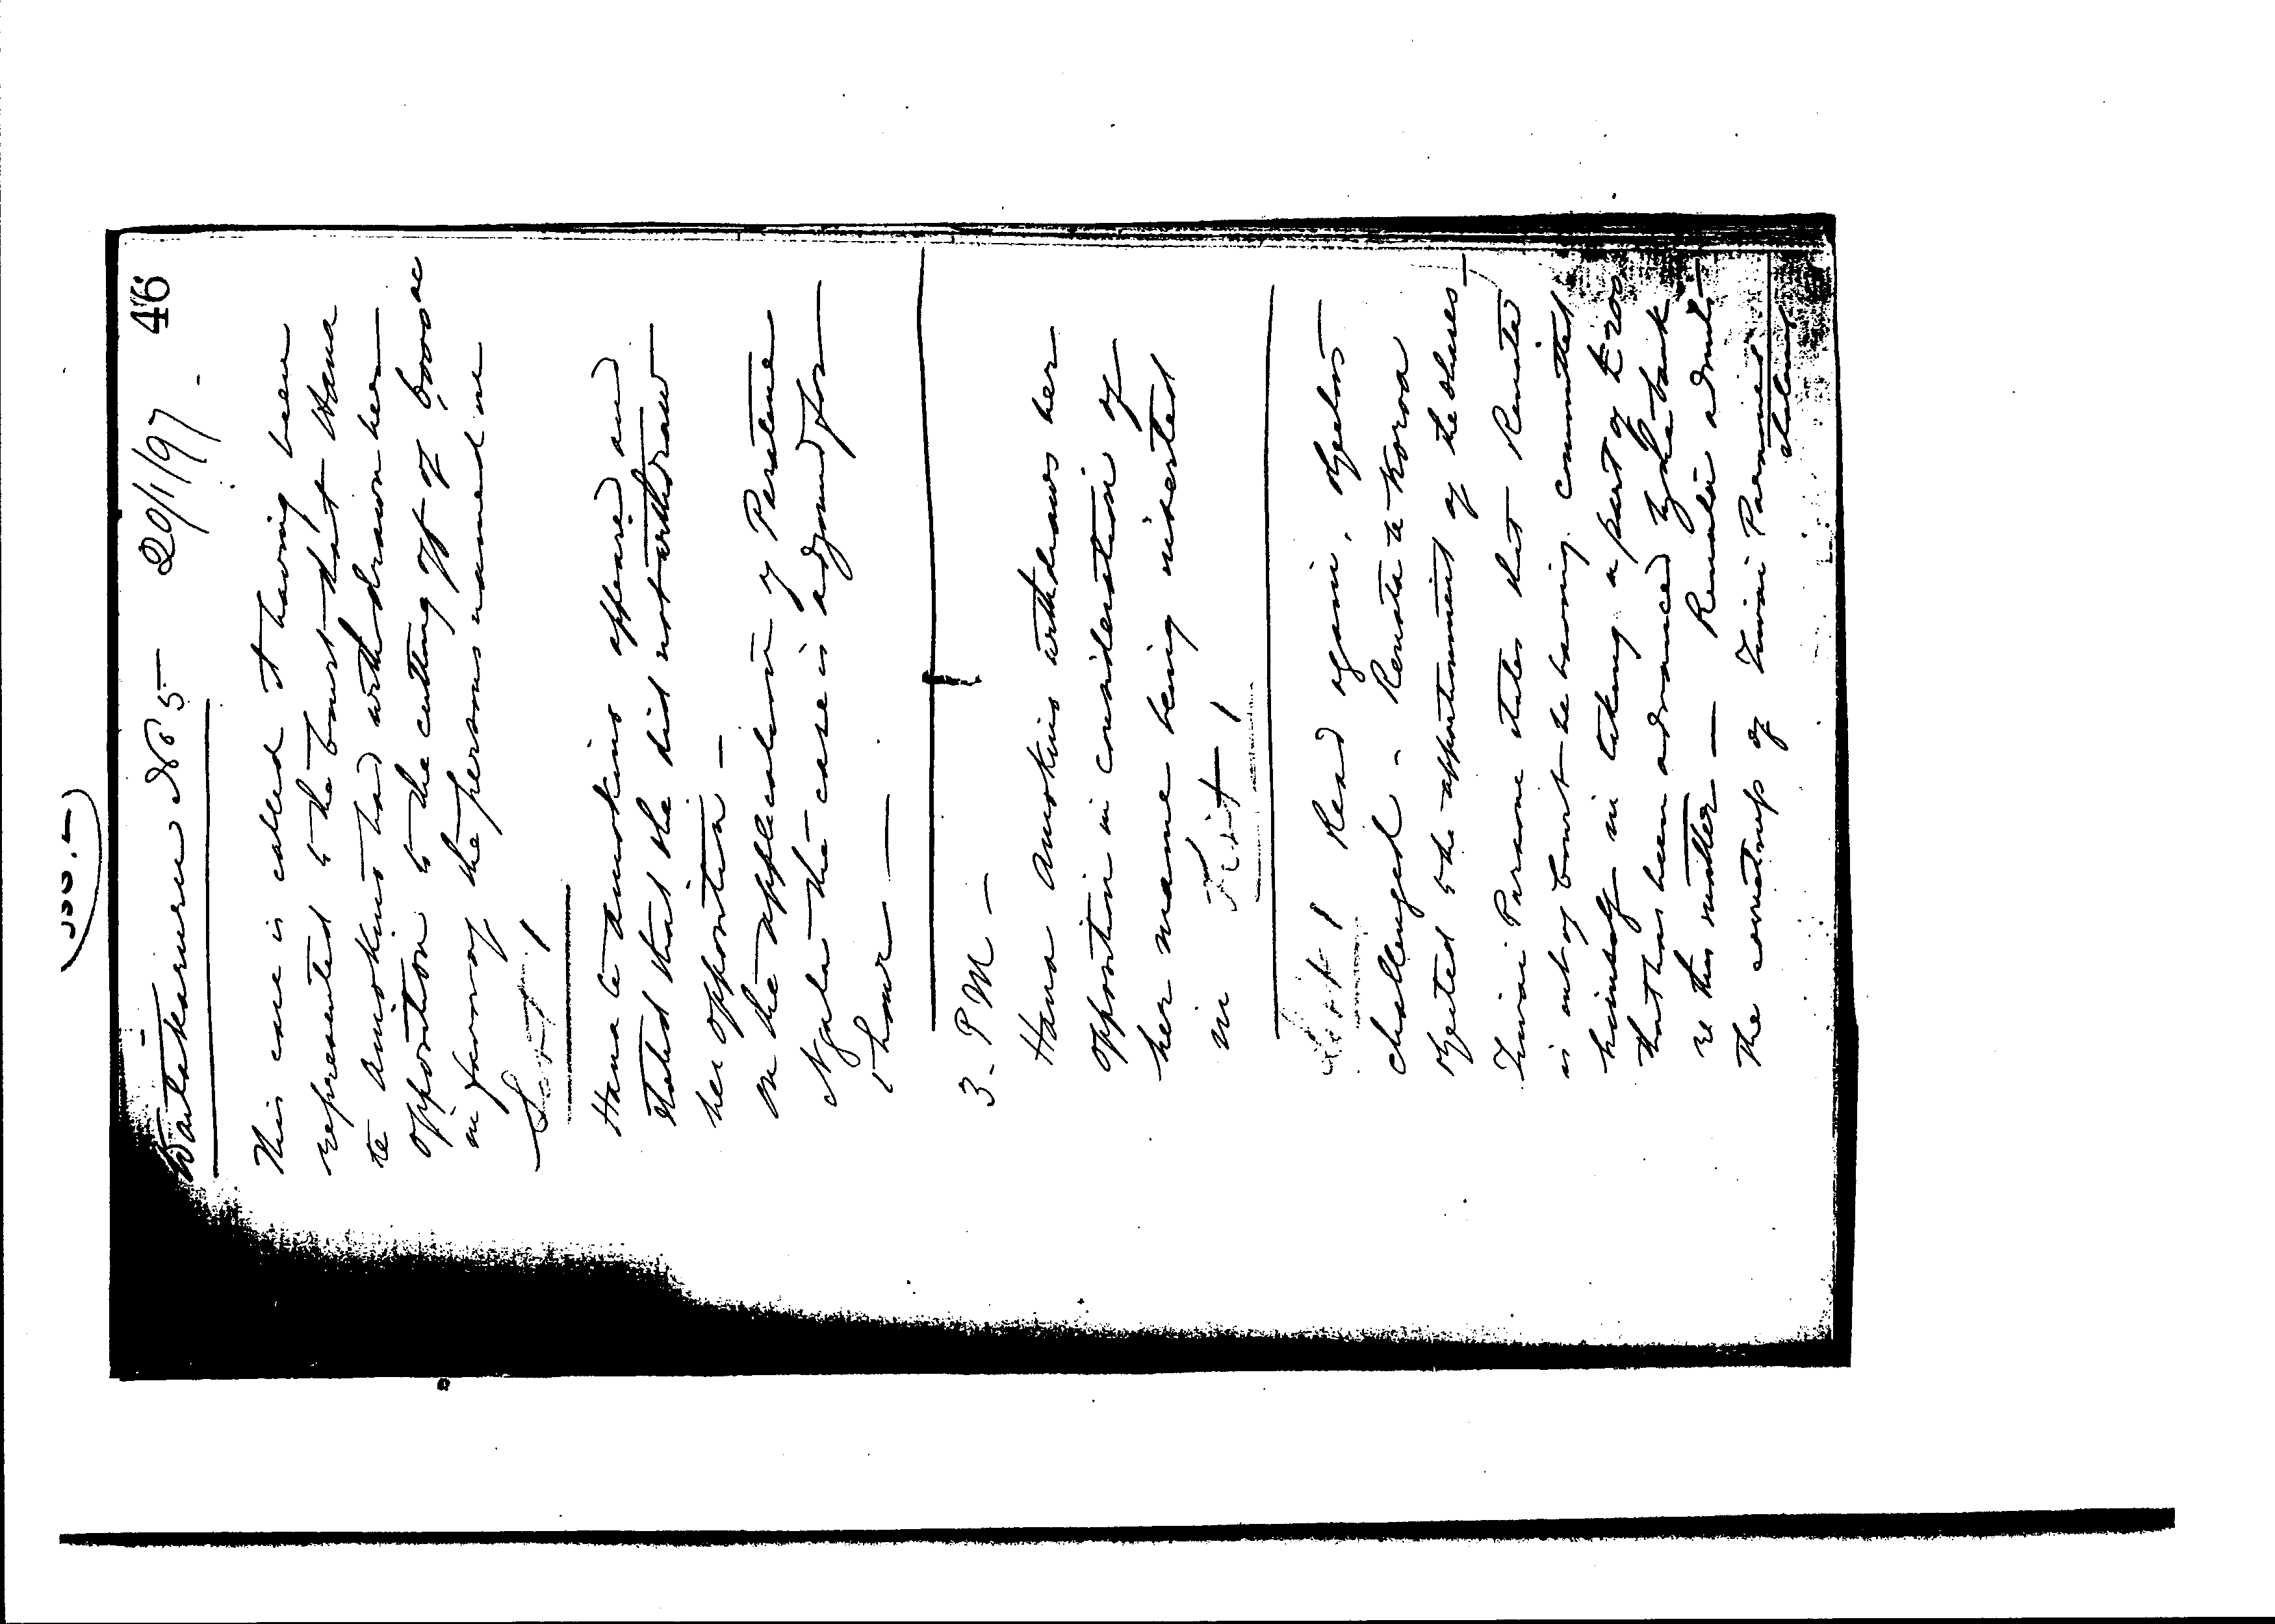 46
Waitakaruru No 5 20/1/97.
This case is called it having been
represented to the Court that Hana
te Amokino had withdrawn her
opposition to the cutting off of 6000 ac
in favor of the persons named in
List 1
Hana te Amokino appeared and
stated that she did not withdraw
her opposition —
On the application of Paratene
Ngata the case is adjourned for
1 hour —
3. PM —
Hana Amokino withdraws her
opposition in consideration of
her name being inserted
in List 1
List 1 Read again, objectors
challenged - Renata te Korowa
objected to the apportionment of the shares —
Tiwai Paraone states that Renata
is out of Court he having committed
himself in taking a part of £200
that has been advanced by the bank
re this matter — Renata admits
the correctness of Tiwai Paraone's
statement